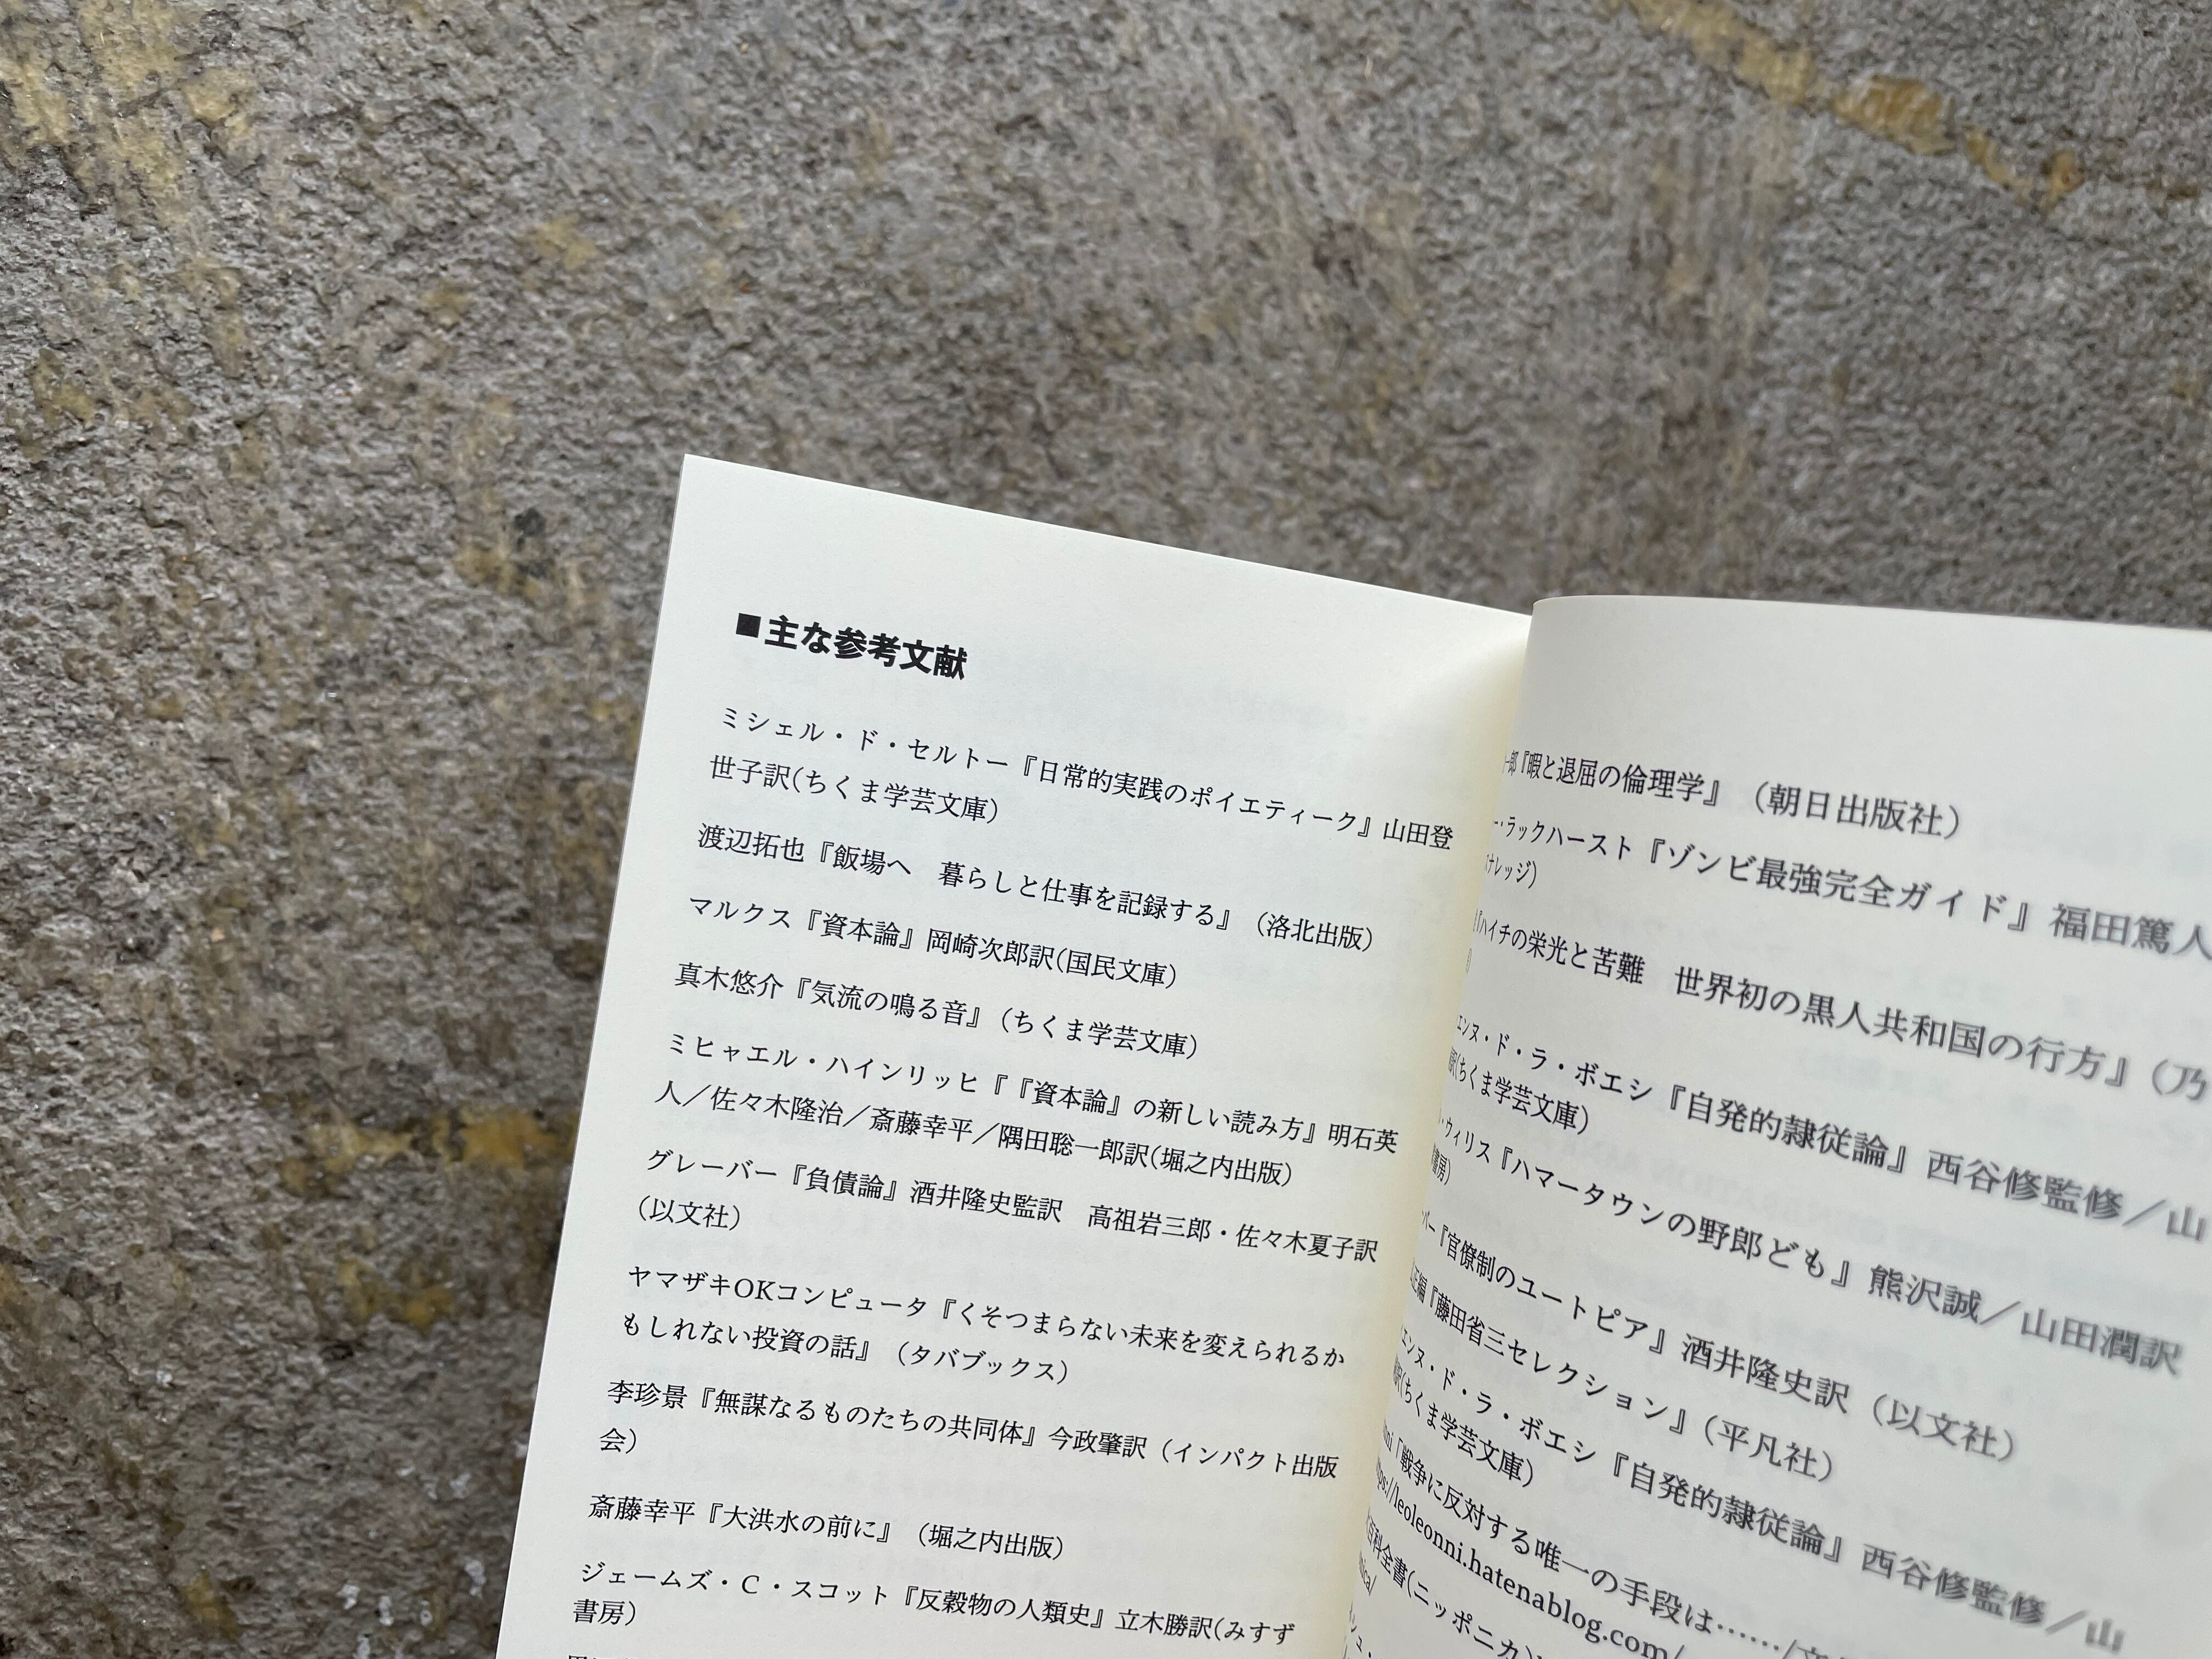 ■主な参考文献
ミシェル・ド・セルトー『日常的実践のポイエティーク』山田登
世子訳(ちくま学芸文庫)
渡辺拓也『飯場へ　暮らしと仕事を記録する』（洛北出版）
マルクス『資本論』岡崎次郎訳(国民文庫)
真木悠介『気流の鳴る音』（ちくま学芸文庫）
ミヒャエル・ハインリッヒ『『資本論』の新しい読み方』明石英
人／佐々木隆治／斎藤幸平／隅田聡一郎訳(堀之内出版)
グレーバー『負債論』酒井隆史監訳　高祖岩三郎・佐々木夏子訳
（以文社）
ヤマザキOKコンピュータ『くそつまらない未来を変えられるか
もしれない投資の話』（タバブックス）
李珍景『無謀なるものたちの共同体』今政肇訳（インパクト出版
会）
斎藤幸平『大洪水の前に』（堀之内出版）
ジェームズ・C・スコット『反穀物の人類史』立木勝訳(みすず
書房）
一郎『暇と退屈の倫理学』（朝日出版社）
ー・ラックハースト『ゾンビ最強完全ガイド』福田篤人
ナレッジ）
『ハイチの栄光と苦難　世界初の黒人共和国の行方』（乃
エンヌ・ド・ラ・ボエシ『自発的隷従論』西谷修監修／山
訳(ちくま学芸文庫)
・ウィリス『ハマータウンの野郎ども』熊沢誠／山田潤訳
書房）
バー『官僚制のユートピア』酒井隆史訳（以文社）
編『藤田省三セレクション』（平凡社）
エンヌ・ド・ラ・ボエシ『自発的隷従論』西谷修監修／山
訳(ちくま学芸文庫)
「戦争に反対する唯一の手段は……/
leoleonni.hatenablog.com/
百科全書(ニッポニカ)